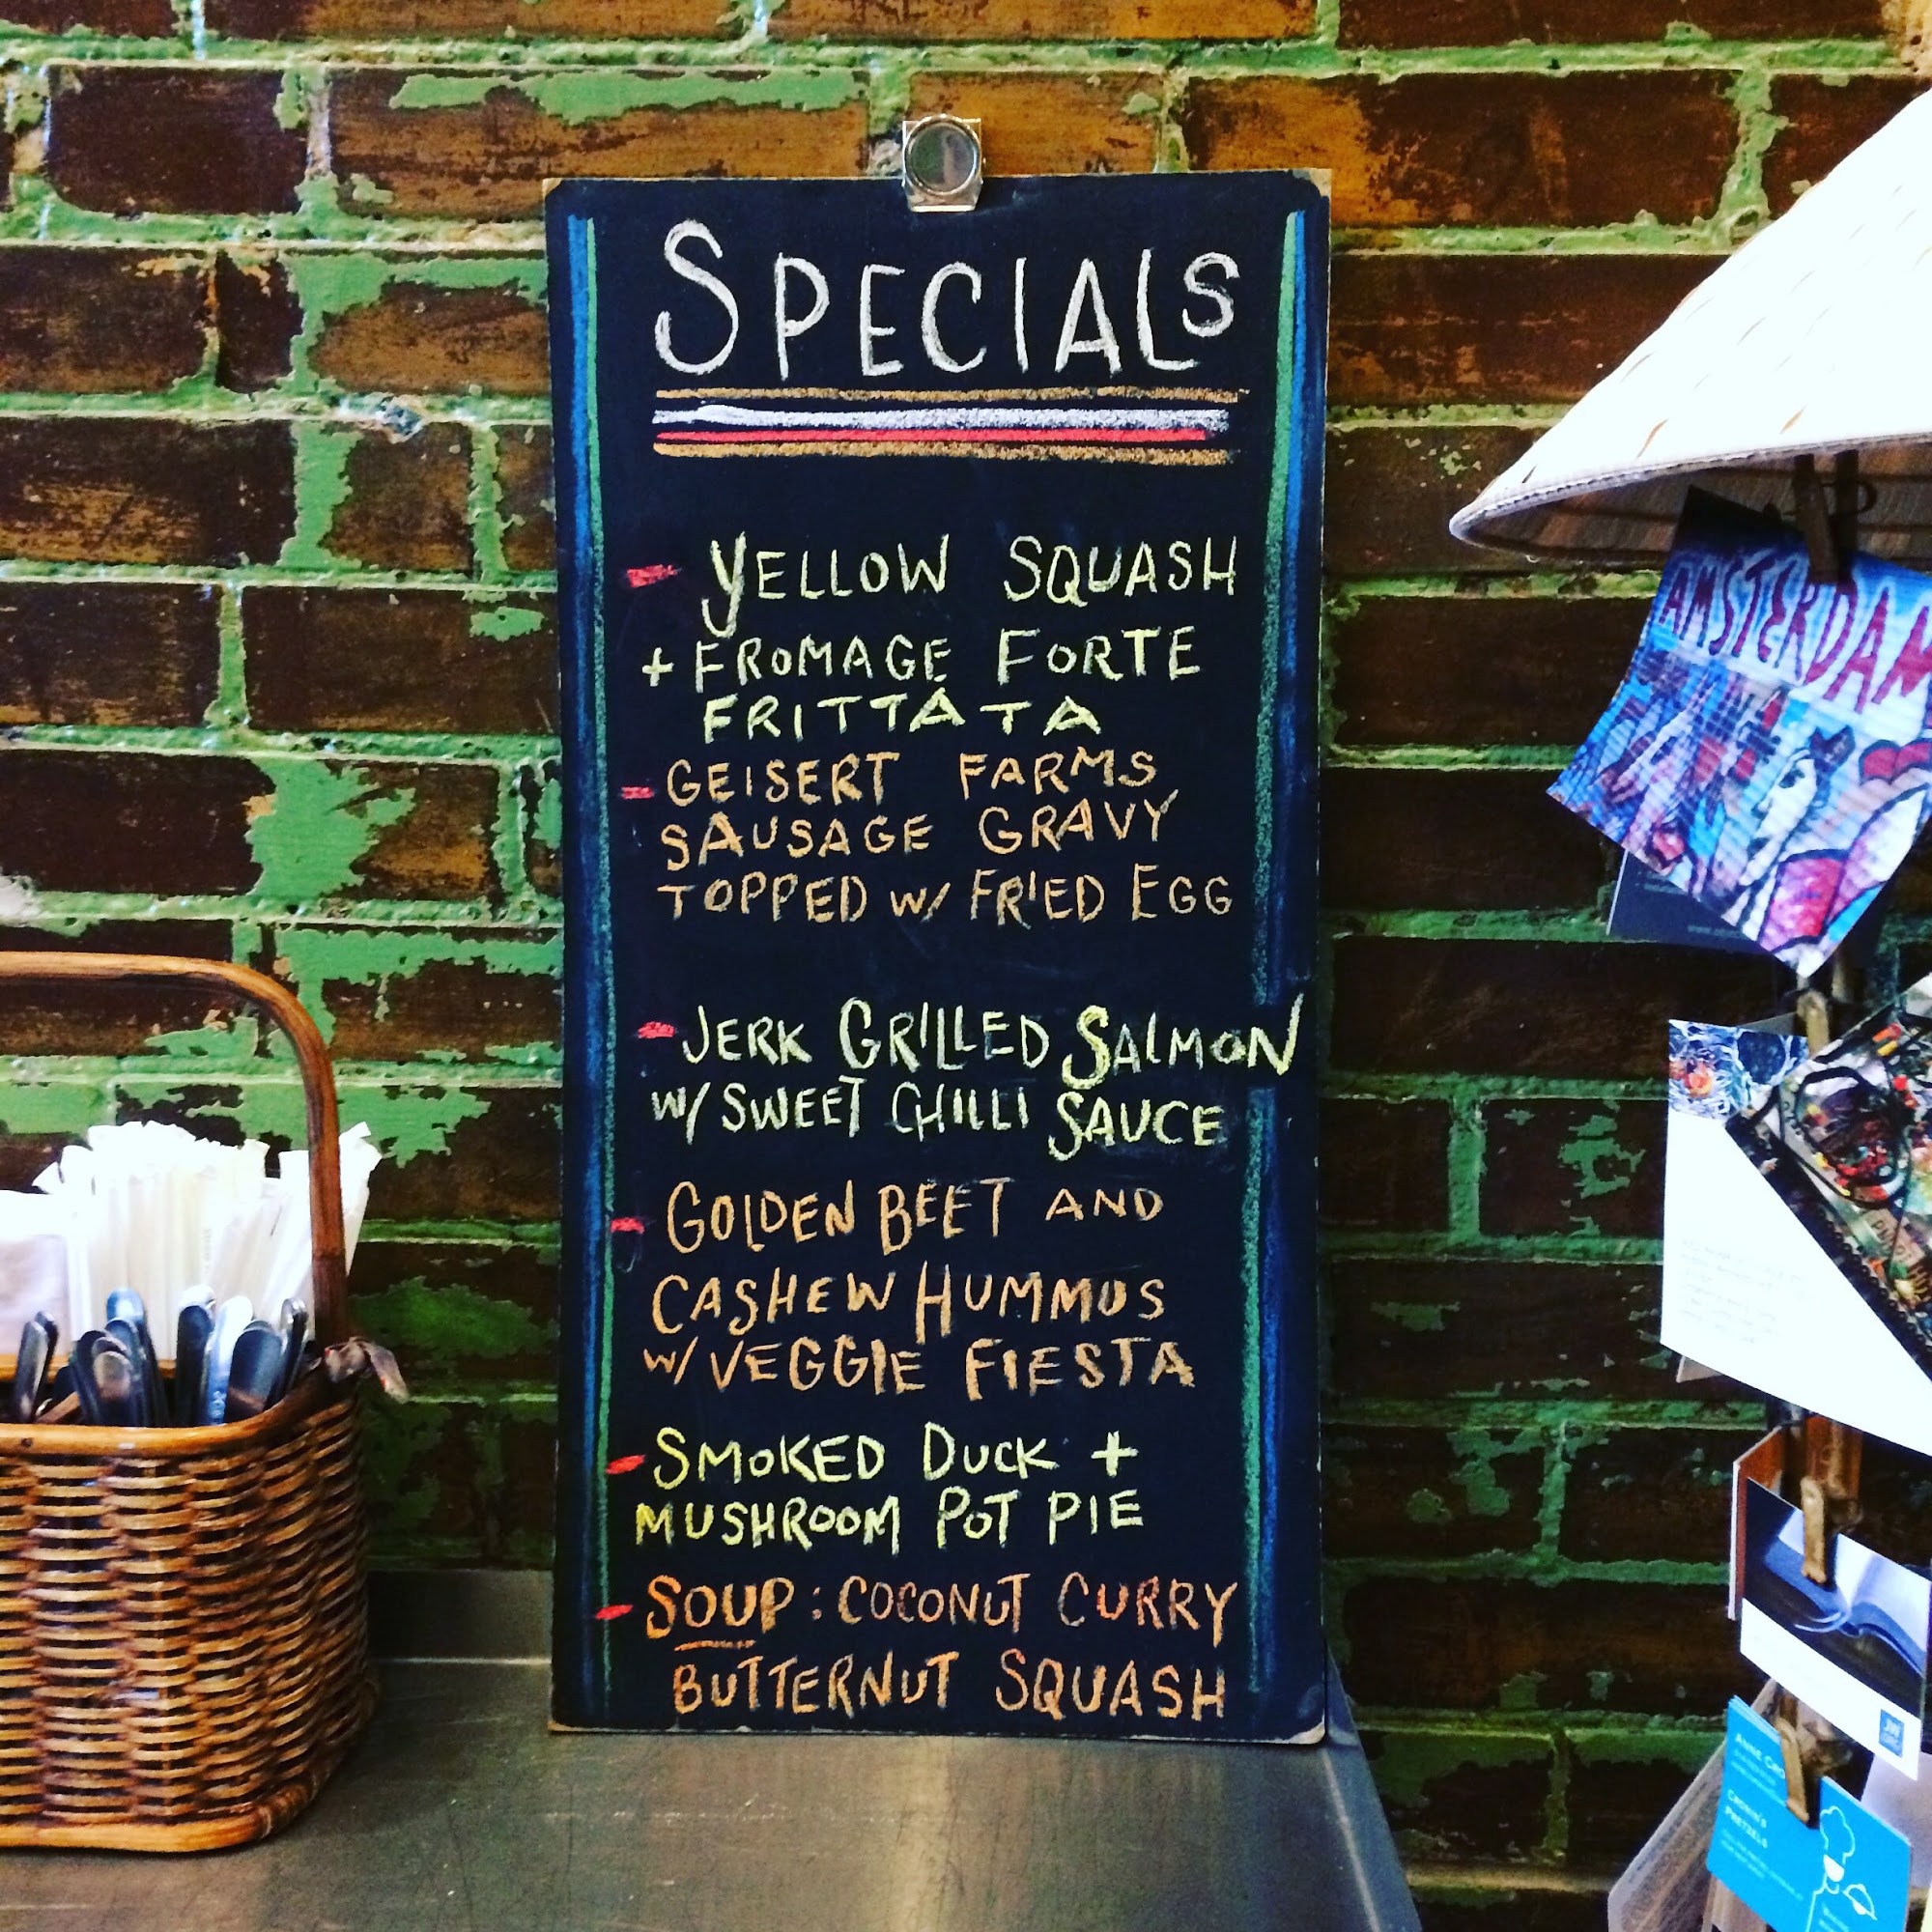 SPECIALS
- YELLOW SQUASH
+ FROMAGE FORTE
FRITTATA
- GEISERT FARMS
SAUSAGE GRAVY
TOPPED W/ FRIED EGG
- JERK GRILLED SALMON
W/ SWEET CHILLI SAUCE
- GOLDEN BEET AND
CASHEW HUMMUS
W/ VEGGIE FIESTA
- SMOKED DUCK +
MUSHROOM POT PIE
- SOUP: COCONUT CURRY
BUTTERNUT SQUASH
AMSTERDAM
JW
ANNE
CRONIN'S
PRETZELS